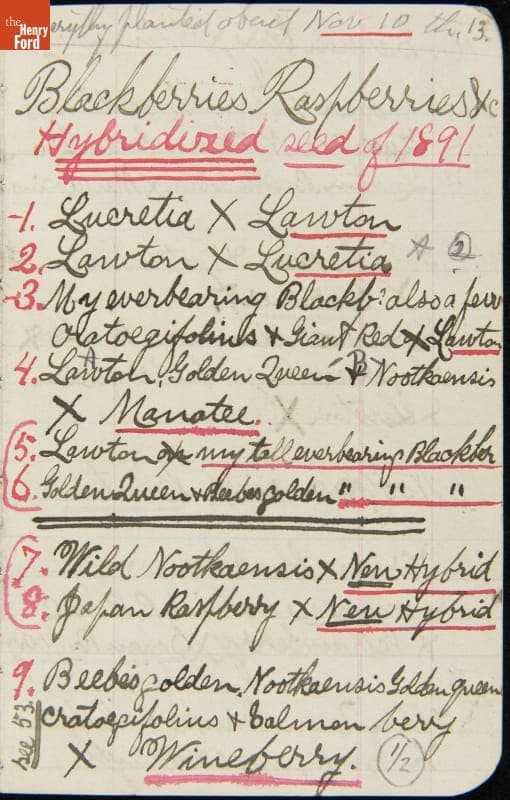 the
Henry
Ford
planted about Nov 10 th. 13.
Blackberries Raspberries &c
Hybridized seed of 1891
1. Lucretia X Lawton
2. Lawton X Lucretia A 2
3. My everbearing Blackb? also a few
Cratoegifolius & Giant Red X Lawton
4. Lawton, Golden Queen & Nootkaensis
A B
X Manatee.
5. Lawton on my tall everbearing Blackber
6. Golden Queen & Beebes golden " " "
7. Wild Nootkaensis X New Hybrid
8. Japan Raspberry X New Hybrid
9. Beebes golden, Nootkaensis Golden queen
cratoegifolius & Salmon berry
see 53
X Wineberry. 1/2